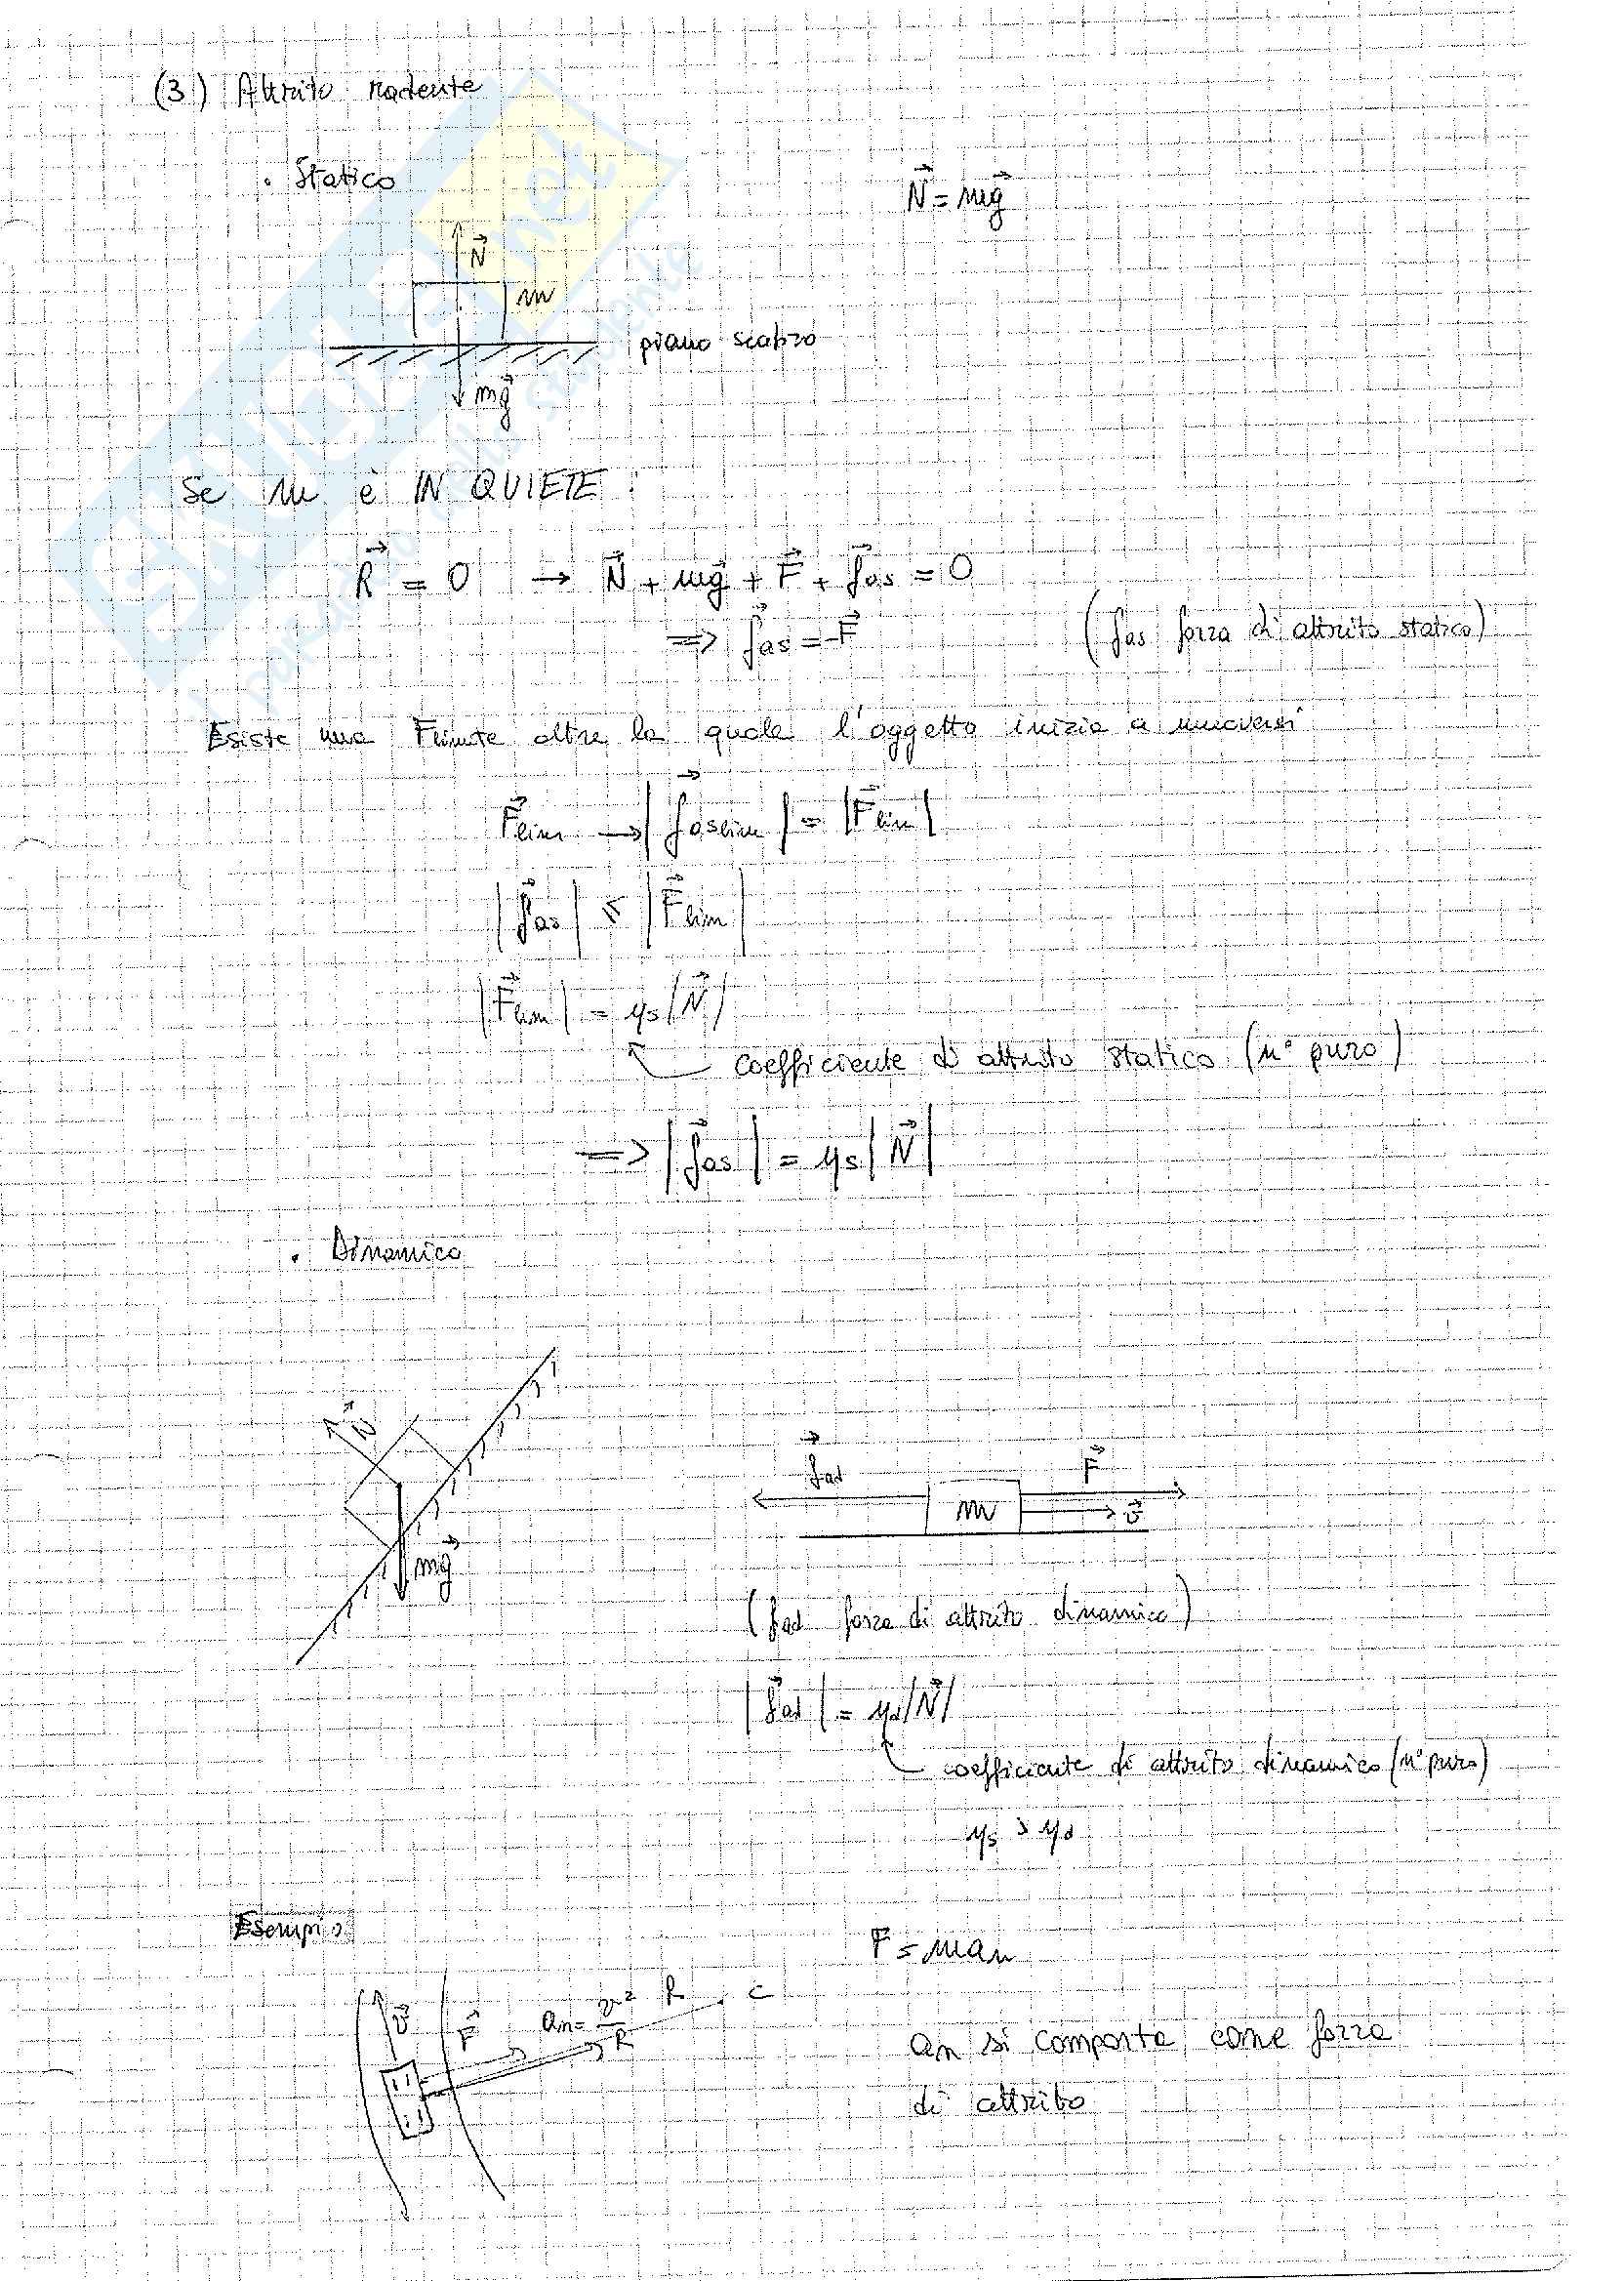 (3) Attrito radente
• Statico
N⃗ = mg⃗
N⃗
m
piano scabro
mg⃗
Se m è IN QUIETE :
R⃗ = 0 → N⃗ + mg⃗ + F⃗ + f⃗as = 0
⇒ f⃗as = -F⃗ (fas forza di attrito statico)
Esiste una Flimite oltre la quale l'oggetto inizia a muoversi
F⃗lim → |f⃗aslim| = |F⃗lim|
|f⃗as| ≤ |F⃗lim|
|F⃗lim| = μs|N⃗|
coefficiente di attrito statico (n° puro)
⇒ |f⃗as| = μs|N⃗|
• Dinamico
N⃗
mg⃗
f⃗ad
F⃗
m
v⃗
(fad forza di attrito dinamico)
|f⃗ad| = μd|N⃗|
coefficiente di attrito dinamico (n° puro)
μs > μd
Esempio:
F = man
v⃗ F⃗ an = v²/R R C
an si comporta come forza
di attrito